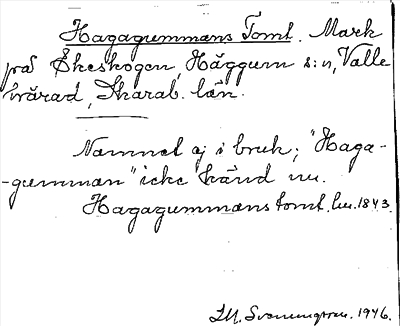 Hagagummans Tomt. Mark
på Ekeskogen, Häggum s:n, Valle
härad, Skarab. län.
Namnet ej i bruk; "Haga-
-gumman" icke känd nu.
Hagagummans tomt hu. 1843.
1946.